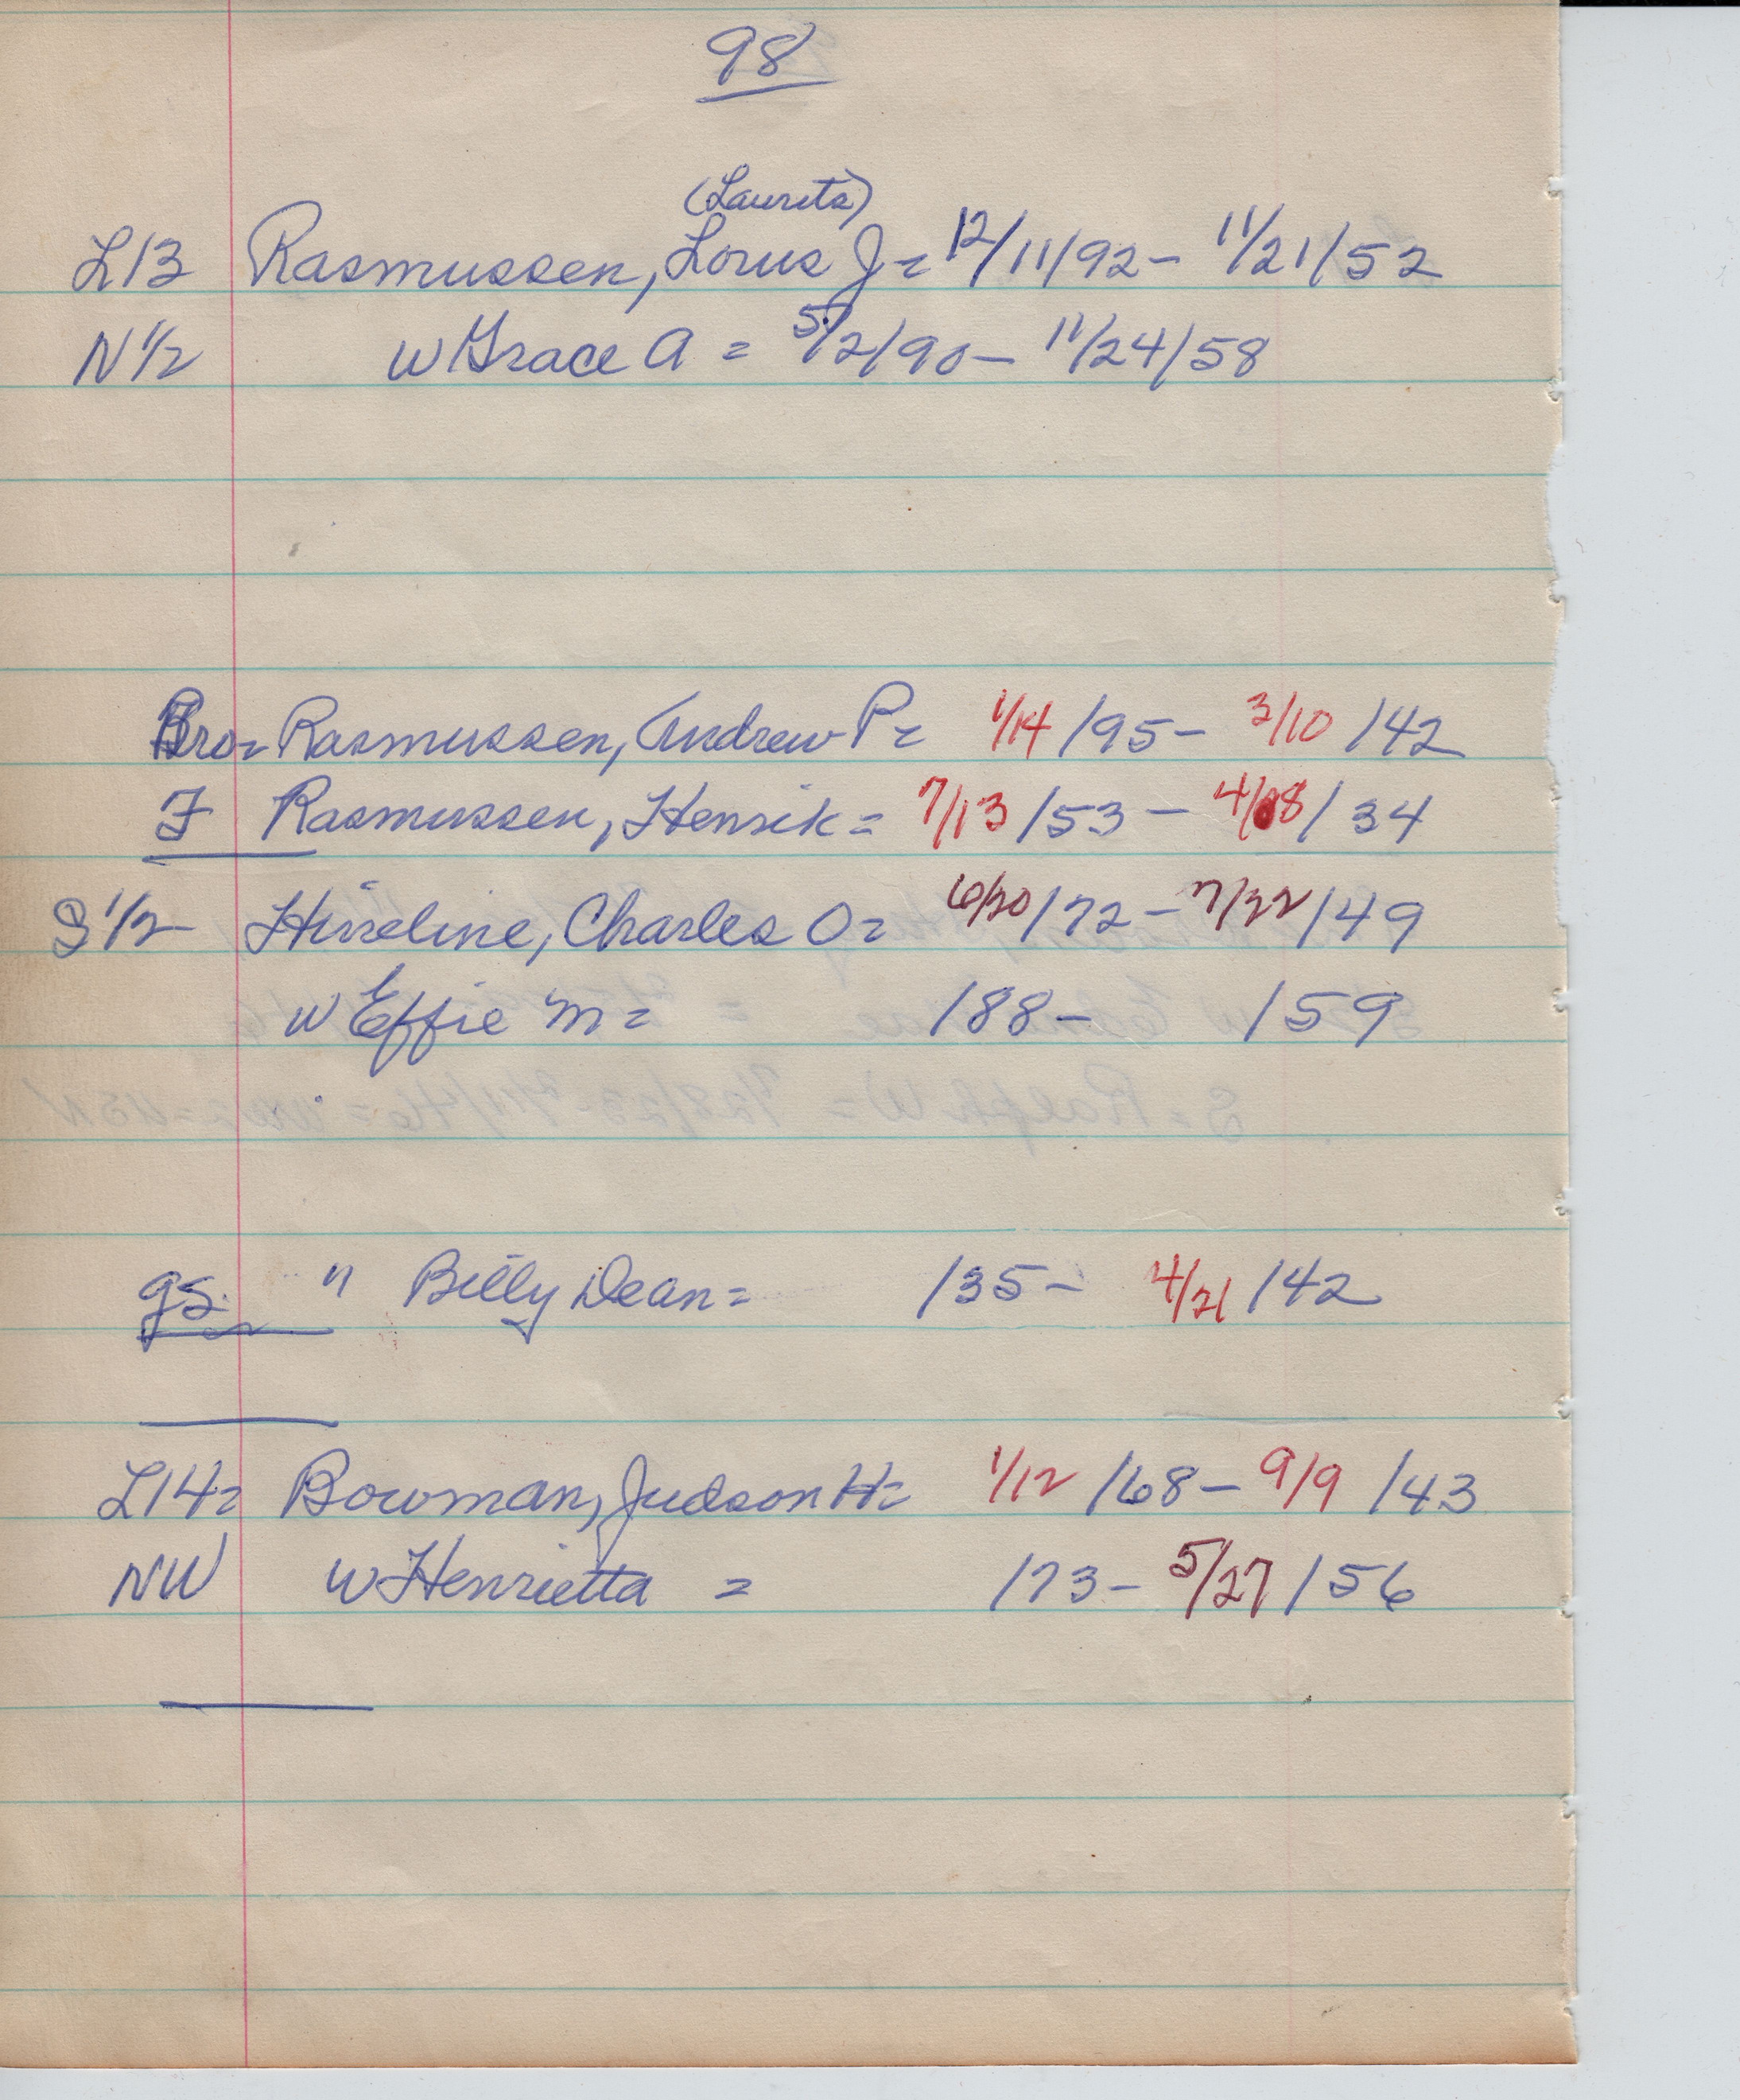 98
(Laurits)
L13 Rasmussen, Lorus J = 12/11/92 - 11/21/52
N 1/2 w Grace A = 5/2/90 - 11/24/58
Bro = Rasmussen, Andrew P = 1/14/95 - 3/10/42
F Rasmussen, Henrik = 7/13/53 - 4/18/34
S 1/2 Hineline, Charles O = 6/20/72 - 7/22/49
w Effie M = /88 - /59
gs. " Billy Dean = /35 - 4/21/42
L14 = Bowman, Judson H = 1/12/68 - 9/9/43
NW w Henrietta = /73 - 5/27/56